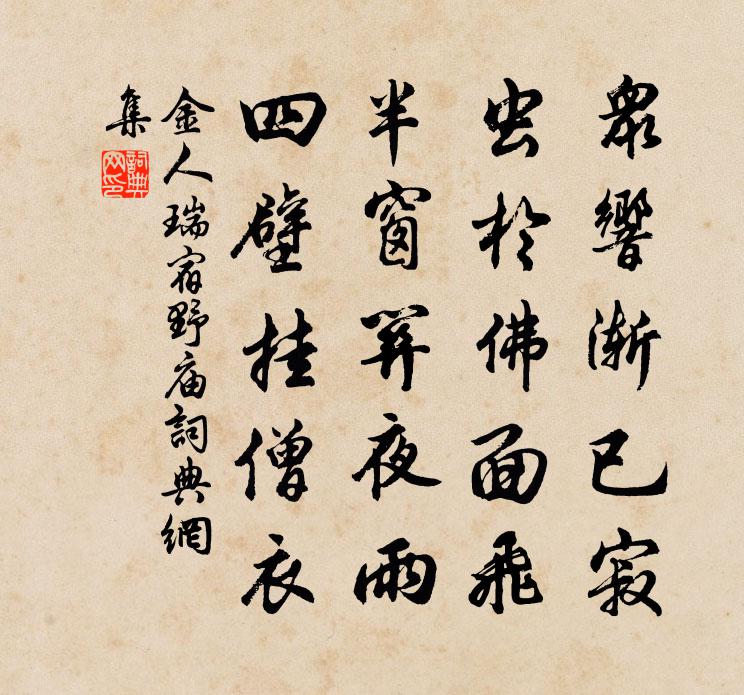 眾響漸已寂
虫於佛面飛
半窗關夜雨
四壁挂僧衣
金人瑞宿野庙詞典網
集
詞典
网印